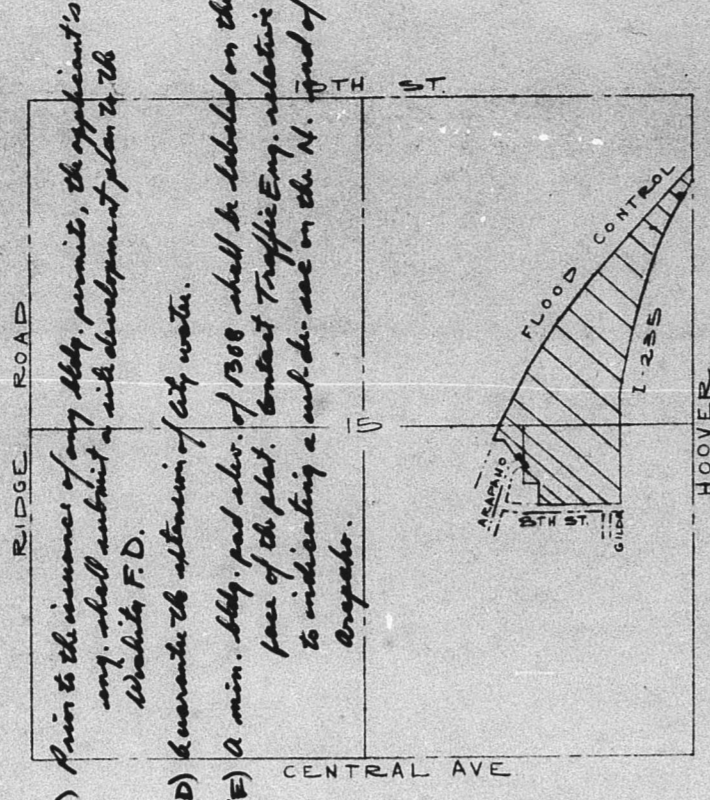 ) Prior to the issuance of any bldg. permits, the applicant's
eng. shall submit a site development plan to the
Wichita F.D.
D) Guarantee the extension of City water.
E) A min. bldg. pad elev. of 1308 shall be labeled on the
face of the plat. Contact Traffic Eng. relative
to indicating a cul-de-sac on the N. end of
Arapaho.
13TH ST.
RIDGE ROAD
FLOOD CONTROL
I-235
HOOVER
15
ARAPAHO
8TH ST.
GILDA
CENTRAL AVE